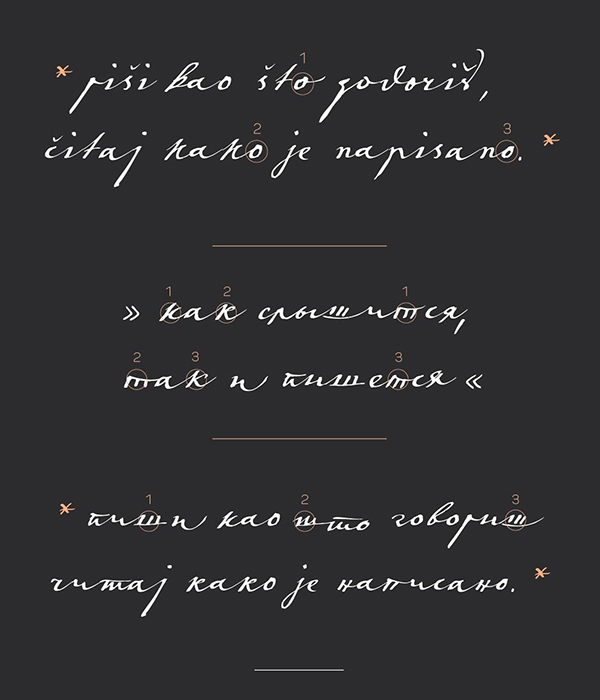 1
* piši kao što govoriš,
2 3
čitaj kako je napisano. *
1 2 1
» как слышится,
2 3 3
так и пишется «
1 2 3
* пиши као што говориш
читај како је написано. *